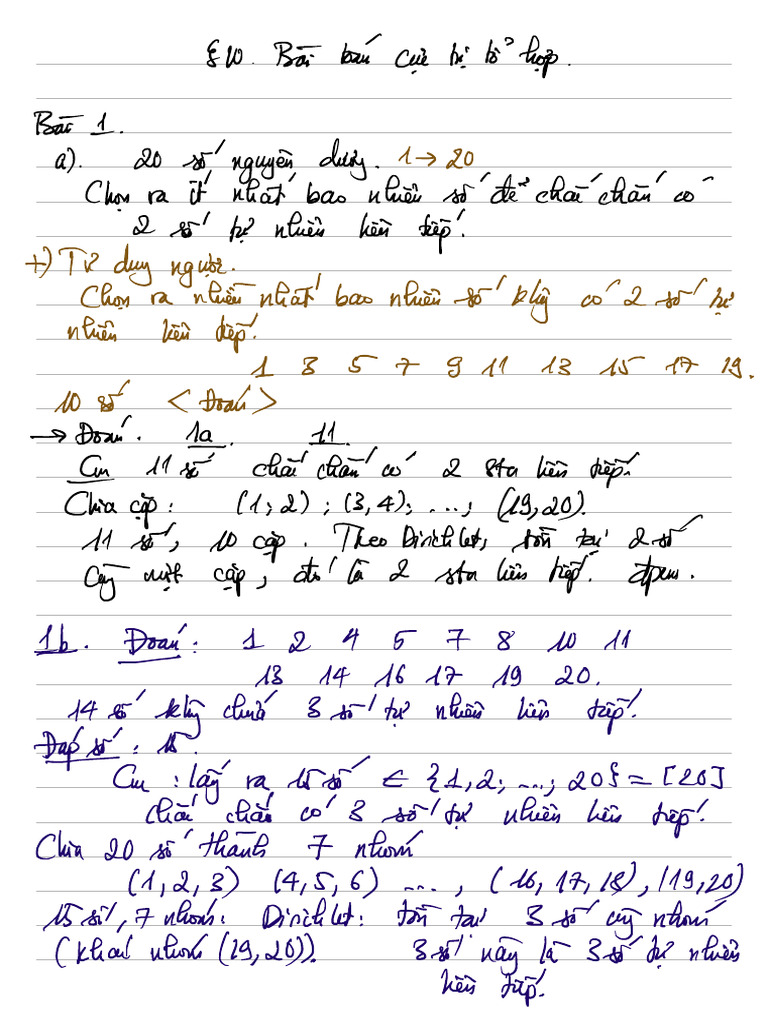 §10. Bài toán cực trị tổ hợp.
Bài 1.
a). 20 số nguyên dương. 1 → 20
Chọn ra ít nhất bao nhiêu số để chắc chắn có
2 số tự nhiên liên tiếp.
+) Tư duy ngược.
Chọn ra nhiều nhất bao nhiêu số không có 2 số tự
nhiên liên tiếp.
1 3 5 7 9 11 13 15 17 19.
10 số <Đoán>
→ Đoán. 1a. 11.
Cm 11 số chắc chắn có 2 stn liên tiếp.
Chia cặp: (1; 2) ; (3, 4); ...; (19, 20).
11 số, 10 cặp. Theo Dirichlet, tồn tại 2 số
cùng một cặp, đó là 2 stn liên tiếp. đpcm.
1b. Đoán: 1 2 4 5 7 8 10 11
13 14 16 17 19 20.
14 số không chứa 3 số tự nhiên liên tiếp.
Đáp số: 15.
Cm: lấy ra 15 số ∈ {1, 2; ...; 20} = [20]
chắc chắn có 3 số tự nhiên liên tiếp.
Chia 20 số thành 7 nhóm
(1, 2, 3) (4, 5, 6) ..., (16, 17, 18), (19, 20)
15 số, 7 nhóm: Dirichlet: tồn tại 3 số cùng nhóm
(khác nhóm (19, 20)). 3 số này là 3 số tự nhiên
liên tiếp.